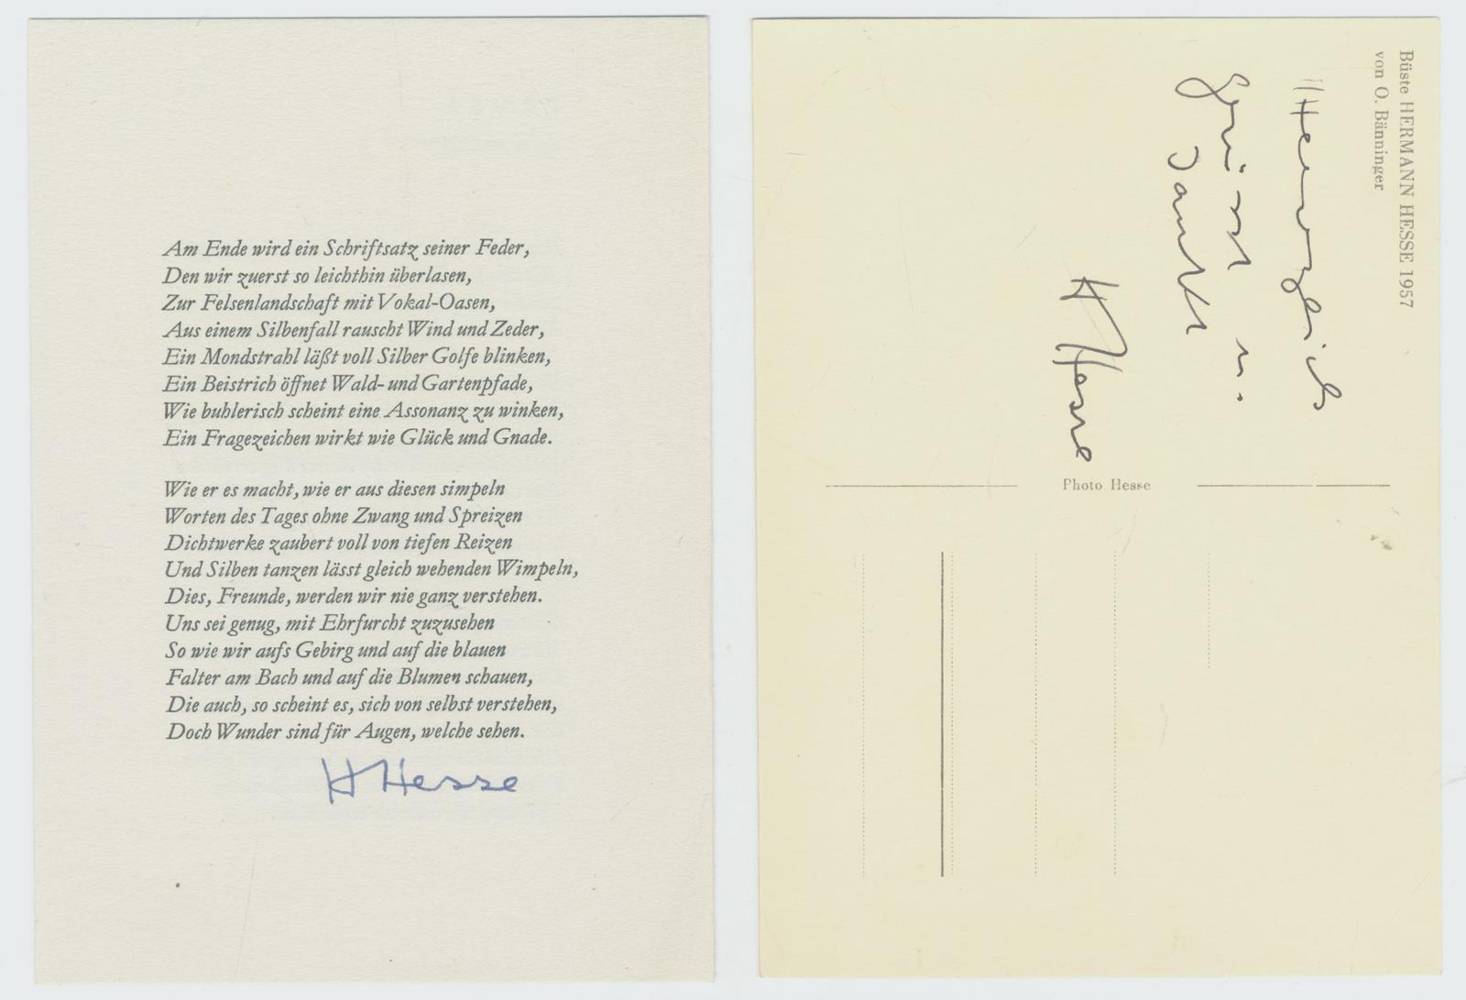 Am Ende wird ein Schriftsatz seiner Feder,
Den wir zuerst so leichthin überlasen,
Zur Felsenlandschaft mit Vokal-Oasen,
Aus einem Silbenfall rauscht Wind und Zeder,
Ein Mondstrahl läßt voll Silber Golfe blinken,
Ein Beistrich öffnet Wald- und Gartenpfade,
Wie buhlerisch scheint eine Assonanz zu winken,
Ein Fragezeichen wirkt wie Glück und Gnade.
Wie er es macht, wie er aus diesen simpeln
Worten des Tages ohne Zwang und Spreizen
Dichtwerke zaubert voll von tiefen Reizen
Und Silben tanzen lässt gleich wehenden Wimpeln,
Dies, Freunde, werden wir nie ganz verstehen.
Uns sei genug, mit Ehrfurcht zuzusehen
So wie wir aufs Gebirg und auf die blauen
Falter am Bach und auf die Blumen schauen,
Die auch, so scheint es, sich von selbst verstehen,
Doch Wunder sind für Augen, welche sehen.
H Hesse
Büste HERMANN HESSE 1957
von O. Bänninger
Herzlich
grüsst u.
dankt
H Hesse
Photo Hesse